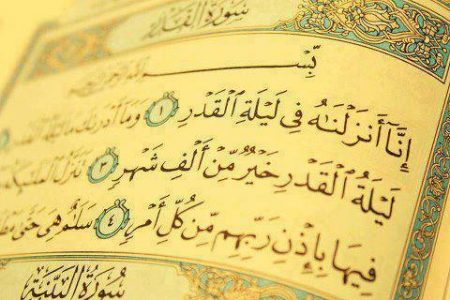 سُورَةُ الْقَدْرِ
بِسْمِ اللَّهِ الرَّحْمَٰنِ الرَّحِيمِ
إِنَّآ أَنزَلْنَٰهُ فِى لَيْلَةِ ٱلْقَدْرِ ١ وَمَآ أَدْرَىٰكَ مَا لَيْلَةُ ٱلْقَدْرِ
لَيْلَةُ ٱلْقَدْرِ خَيْرٌ مِّنْ أَلْفِ شَهْرٍ ٣ تَنَزَّلُ ٱلْمَلَٰٓئِكَةُ
فِيهَا بِإِذْنِ رَبِّهِم مِّن كُلِّ أَمْرٍ ٤ سَلَٰمٌ هِىَ حَتَّىٰ
سُورَةُ الْبَيِّنَةِ